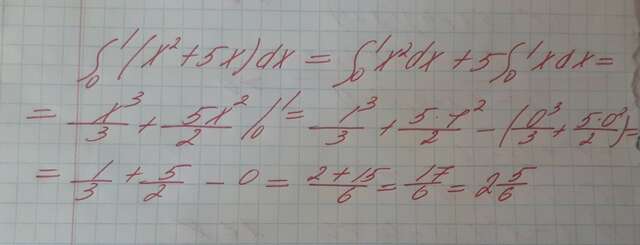 ∫₀¹(x²+5x)dx = ∫₀¹x²dx + 5∫₀¹xdx =
= x³/3 + 5x²/2 /₀¹ = 1³/3 + 5·1²/2 - (0³/3 + 5·0²/2) =
= 1/3 + 5/2 - 0 = 2+15/6 = 17/6 = 2 5/6